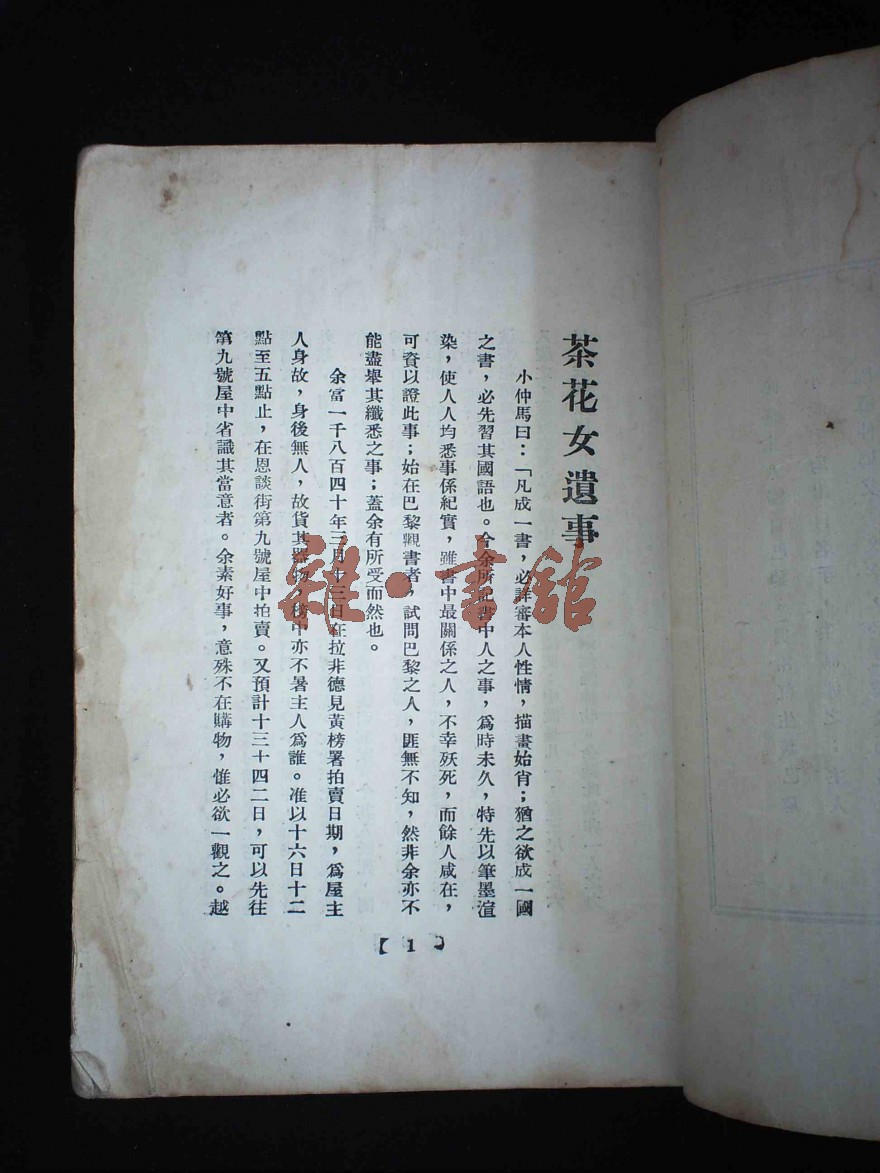 茶花女遺事
小仲馬曰：「凡成一書，必詳審本人性情，描畫始肖；猶之欲成一國
之書，必先習其國語也。今余所記書中人之事，爲時未久，特先以筆墨渲
染，使人人均悉事係紀實，雖書中最關係之人，不幸殀死，而餘人咸在，
可資以證此事；始在巴黎觀書者，試問巴黎之人，匪無不知，然非余亦不
能盡舉其纖悉之事；蓋余有所受而然也。
余當一千八百四十年三月十三日在拉非德見黃榜署拍賣日期，爲屋主
人身故，身後無人，故貨其器物，榜中亦不署主人爲誰。准以十六日十二
點至五點止，在恩談街第九號屋中拍賣。又預計十三十四二日，可以先往
第九號屋中省識其當意者。余素好事，意殊不在購物，惟必欲一觀之。越
【1】
雜·書館